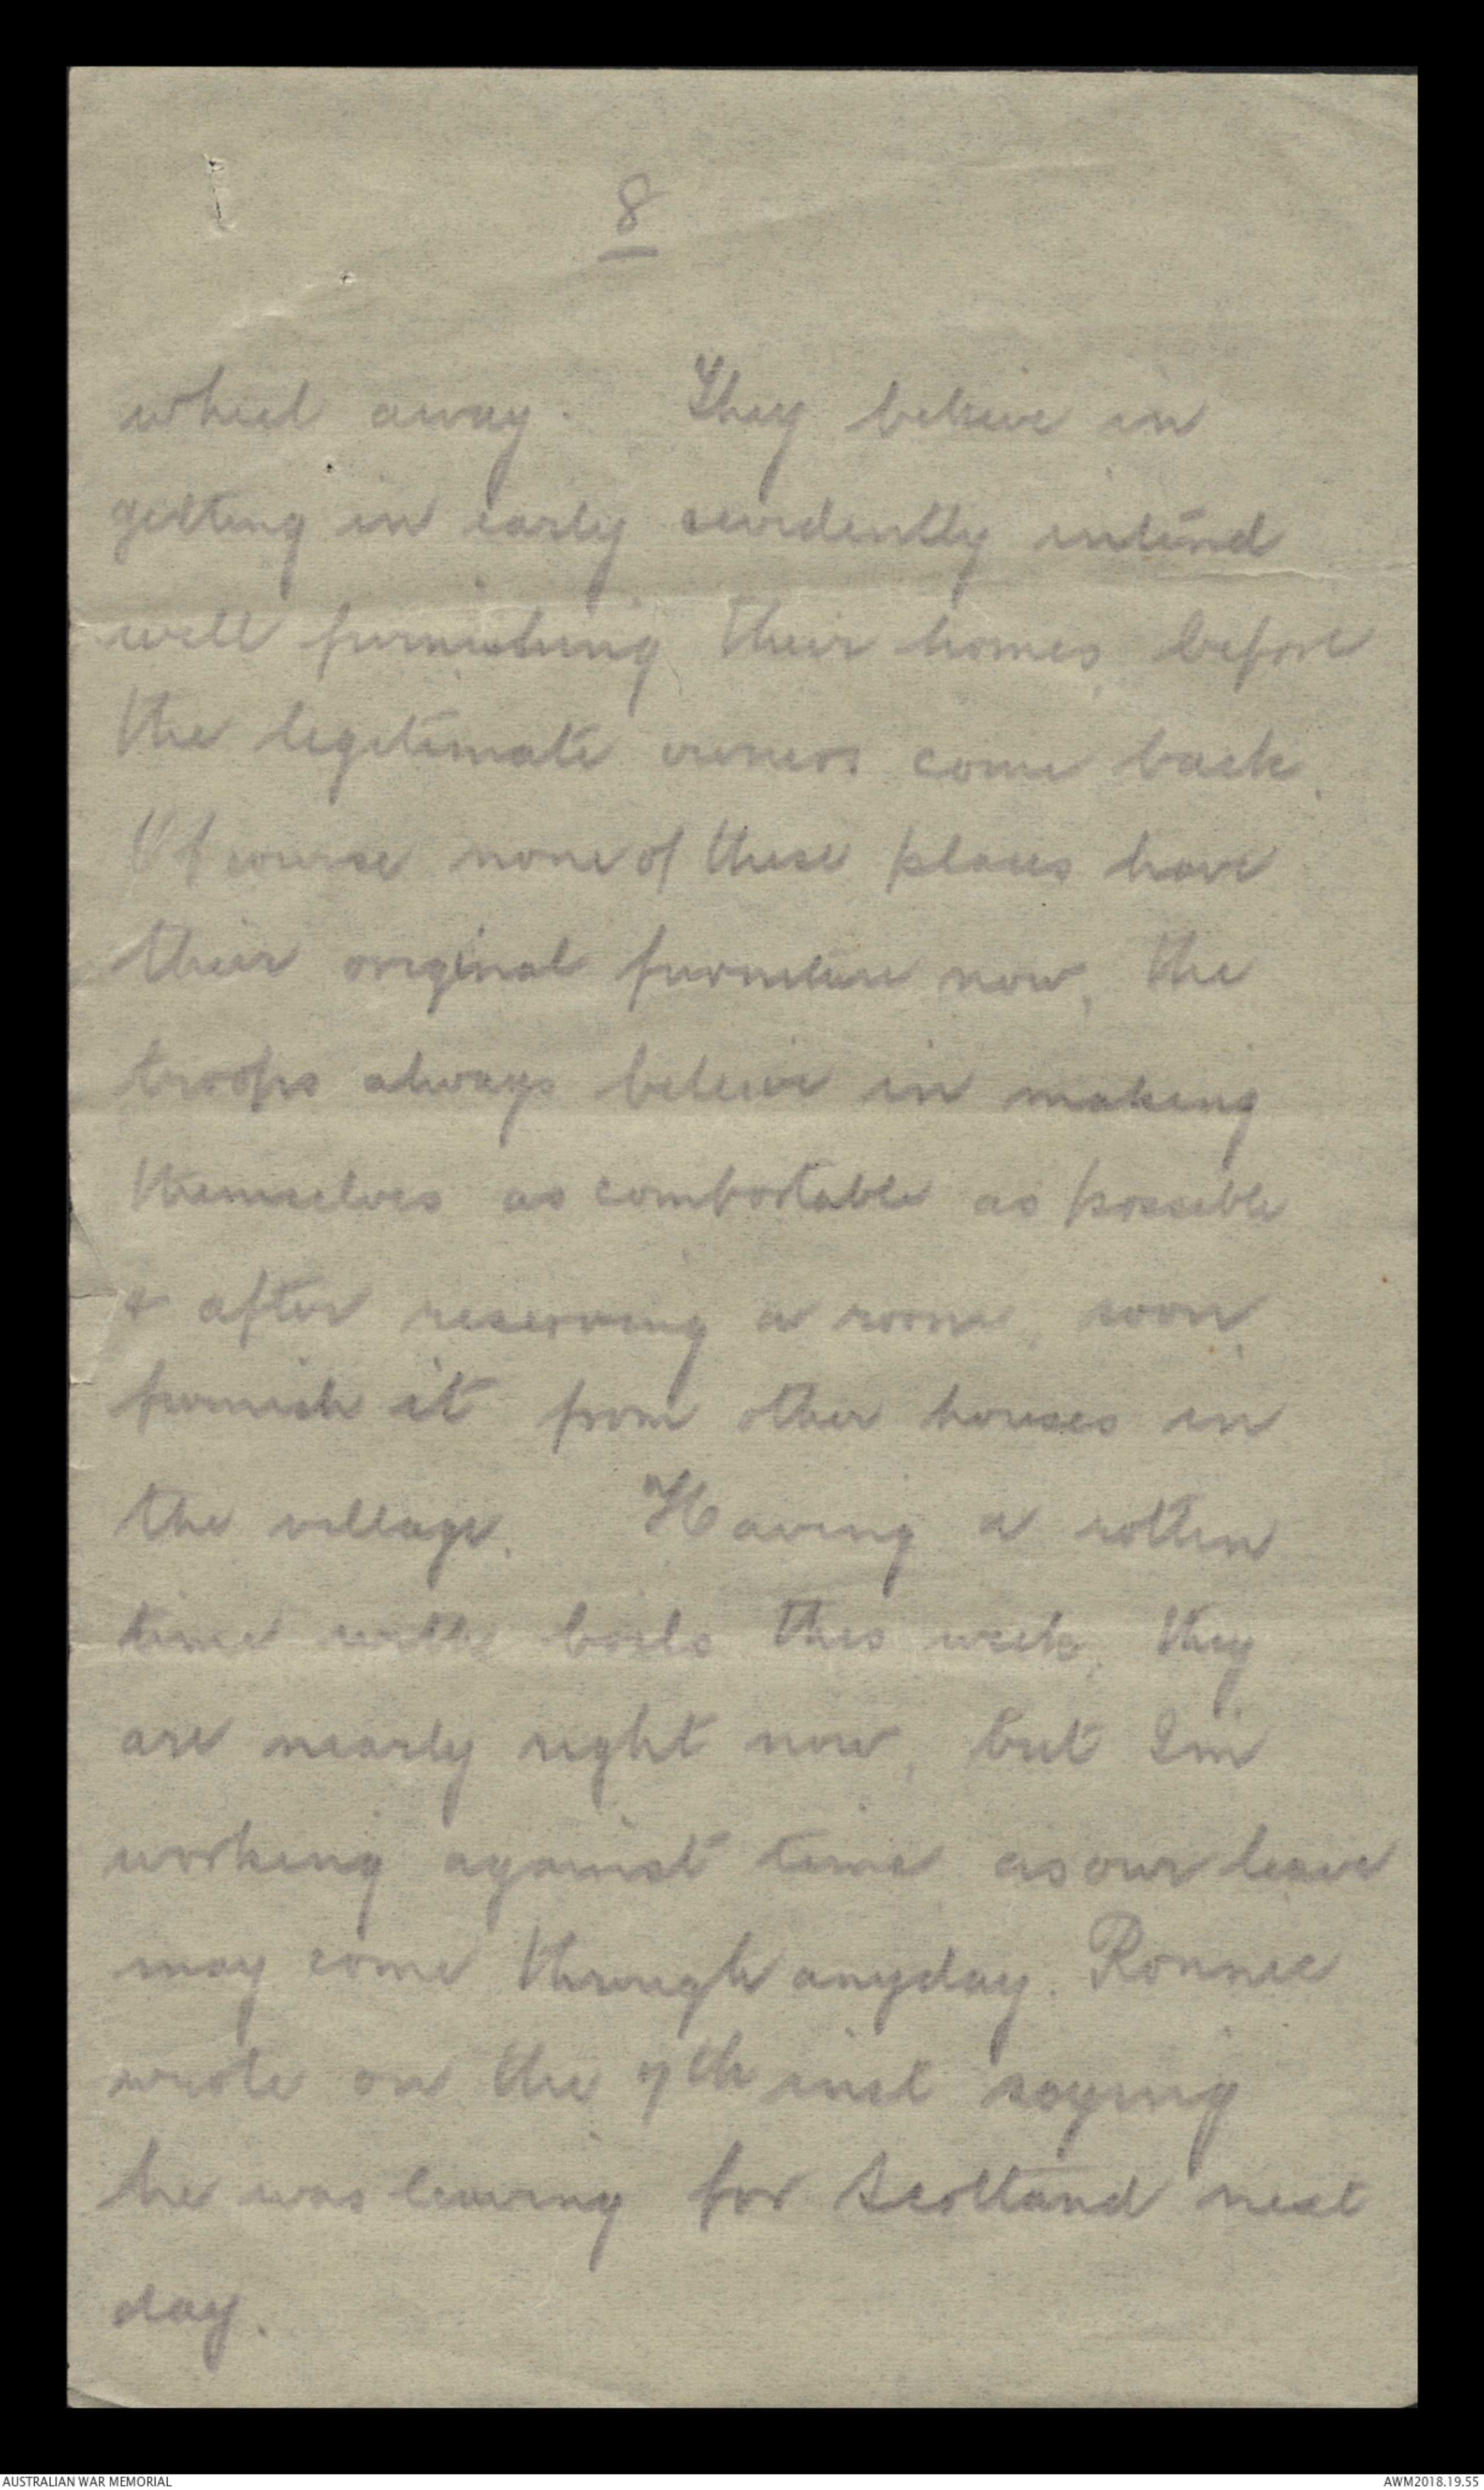 8
wheel away. They believe in
getting in early evidently intend
well furnishing their homes before
the legitimate owners come back.
Of course none of these places have
their original furniture now, the
troops always believe in making
themselves as comfortable as possible
& after reserving a room, soon
furnish it from other houses in
the village. Having a rotten
time with boils this week, they
are nearly right now, but I'm
working against time as our leave
may come through anyday. Ronnie
wrote on the 7th inst saying
he was leaving for Scotland next
day.
AUSTRALIAN WAR MEMORIAL
AWM2018.19.55